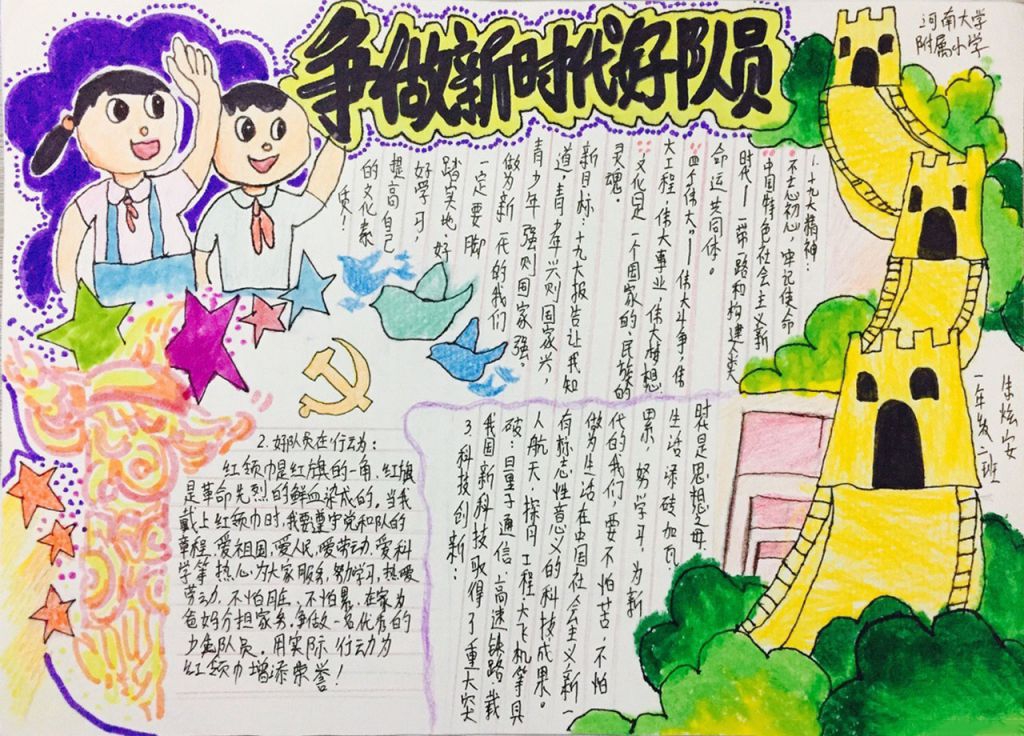 争做新时代好队员
河南大学
附属小学
朱炫安
一年级二班
1.十九大精神：
不忘初心，牢记使命
中国特色社会主义新
时代——一带一路构构建人类
命运共同体。
四个伟大。——伟大斗争，伟
大工程，伟大事业，伟大梦想
文化是一个国家的、民族的
灵魂。
新目标：十九大报告让我知
道，青少年兴则国家兴，
青少年强则国家强。
做为新一代的我们
一定要脚
踏实地，好
好学习，
提高自己
的文化素
质！
2.好队员在行动：
红领巾是红旗的一角，红旗
是革命先烈的鲜血染成的。当我
戴上红领巾时，我要遵守党和队的
章程，爱祖国，爱人民，爱劳动，爱科
学等，热心为大家服务，努力学习，热爱
劳动，不怕脏，不怕累，在家为
爸妈分担家务。争做一名优秀的
少先队员，用实际行动为
红领巾增添荣誉！
3.科技创新：
我国新科技取得了重大突
破：量子通信、高速铁路、载
人航天、探月工程、大飞机等具
有标志性意义的科技成果。
做为生活在中国社会主义新一
代的我们，要不怕苦，不怕
累，努力学习，为新
生活添砖加瓦。
时代是思想之母